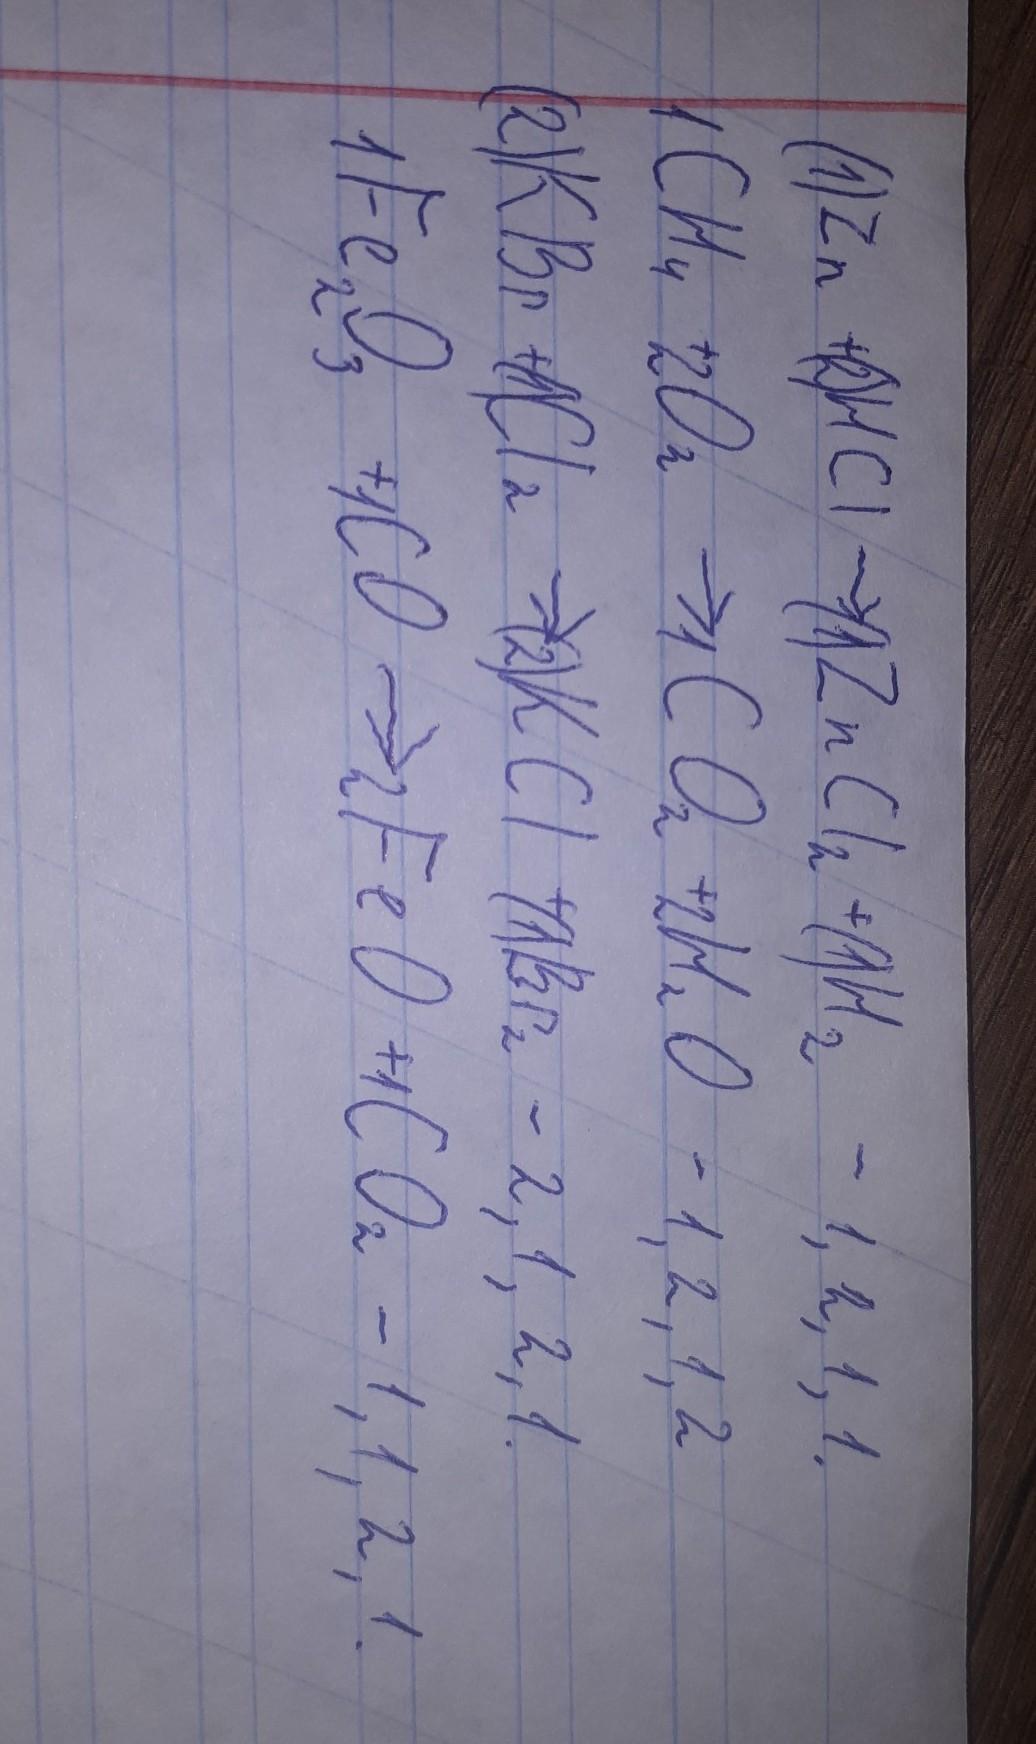 (1)Zn +(2)HCl → (1)ZnCl₂ +(1)H₂ - 1, 2, 1, 1.
1CH₄ +2O₂ → 1CO₂ +2H₂O - 1, 2, 1, 2
(2)KBr +(1)Cl₂ → (2)KCl +(1)Br₂ - 2, 1, 2, 1.
1Fe₂O₃ +1CO → 2FeO +1CO₂ - 1, 1, 2, 1.